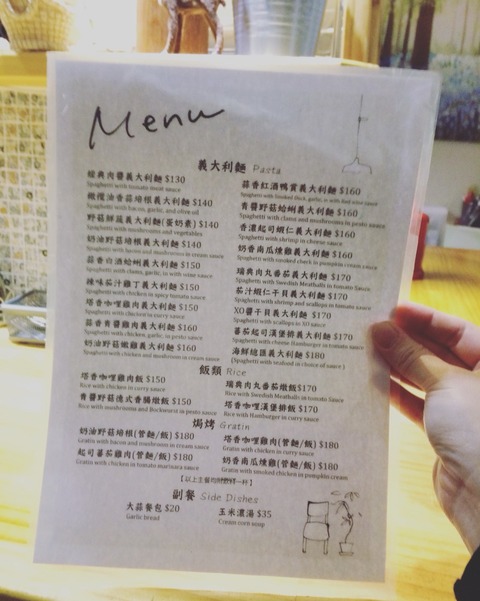 Menu
義大利麵 Pasta
經典肉醬義大利麵 $130
Spaghetti with tomato meat sauce
橄欖油香蒜培根義大利麵 $140
Spaghetti with bacon, garlic, and olive oil
野菇鮮蔬義大利麵(蛋奶素) $140
Spaghetti with mushrooms and vegetables
奶油野菇培根義大利麵 $140
Spaghetti with bacon and mushrooms in cream sauce
蒜香白酒蛤蜊義大利麵 $150
Spaghetti with clams, garlic, in with wine sauce
辣味茄汁雞丁義大利麵 $150
Spaghetti with chicken in spicy tomato sauce
塔香咖哩雞肉義大利麵 $150
Spaghetti with chicken in curry sauce
蒜香青醬雞肉義大利麵 $160
Spaghetti with chicken, garlic, in pesto sauce
奶油野菇嫩雞義大利麵 $160
Spaghetti with chicken and mushroom in cream sauce
蒜香紅酒鴨賞義大利麵 $160
Spaghetti with Smoked duck, garlic, in with Red wine sauce
青醬野菇蛤蜊義大利麵 $160
Spaghetti with clams and mushrooms in pesto sauce
香濃起司蝦仁義大利麵 $160
Spaghetti with shrimp in cheese sauce
奶香南瓜燻雞義大利麵 $160
Spaghetti with smoked chick in pumpkin cream sauce
瑞典肉丸番茄義大利麵 $170
Spaghetti with Swedish Meatballs in tomato Sauce
茄汁蝦仁干貝義大利麵 $170
Spaghetti with shrimp and scallops in tomato sauce
XO醬干貝義大利麵 $170
Spaghetti with scallops in XO sauce
蕃茄起司漢堡排義大利麵 $170
Spaghetti with cheese Hamburger in tomato sauce
海鮮總匯義大利麵 $180
(Spaghetti with seafood in choice of sauce)
飯類 Rice
塔香咖哩雞肉飯 $150
Rice with chicken in curry sauce
青醬野菇德式香腸燉飯 $150
Rice with mushrooms and Bockwurst in pesto sauce
瑞典肉丸番茄燉飯$170
Rice with Swedish Meatballs in tomato Sauce
塔香咖哩漢堡排飯 $170
Rice with Hamburger in curry sauce
焗烤 Gratin
奶油野菇培根(管麵/飯) $180
Gratin with bacon and mushroom in cream sauce
起司蕃茄雞肉(管麵/飯) $180
Gratin with chicken in tomato marinara sauce
塔香咖哩雞肉(管麵/飯) $180
Gratin with chicken in curry sauce
奶香南瓜燻雞(管麵/飯) $180
Gratin with smoked chicken in pumpkin cream sauce
【以上主餐均附飲料一杯】
副餐 Side Dishes
大蒜餐包 $20
Garlic bread
玉米濃湯 $35
Cream corn soup